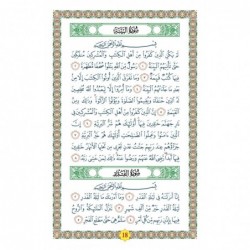 سورة البينة
بسم الله الرحمن الرحيم
لم يكن الذين كفروا من أهل الكتب والمشركين منفكين
حتى تأتيهم البينة رسول من الله يتلوا صحفا مطهرة
فيها كتب قيمة وما تفرق الذين أوتوا الكتب إلا من بعد
ما جاءتهم البينة وما أمروا إلا ليعبدوا الله مخلصين له الدين
حنفاء ويقيموا الصلوة ويؤتوا الزكوة وذلك دين القيمة
إن الذين كفروا من أهل الكتب والمشركين في نار جهنم خلدين
فيها أولئك هم شر البرية إن الذين ءامنوا
وعملوا الصلحت أولئك هم خير البرية جزاؤهم
عند ربهم جنت عدن تجري من تحتها الأنهر خلدين
فيها أبدا رضي الله عنهم ورضوا عنه ذلك لمن خشي ربه
سورة القدر
بسم الله الرحمن الرحيم
إنا أنزلنه في ليلة القدر وما أدرىك ما ليلة القدر
ليلة القدر خير من ألف شهر تنزل الملئكة والروح
فيها بإذن ربهم من كل أمر سلم هي حتى مطلع الفجر
18